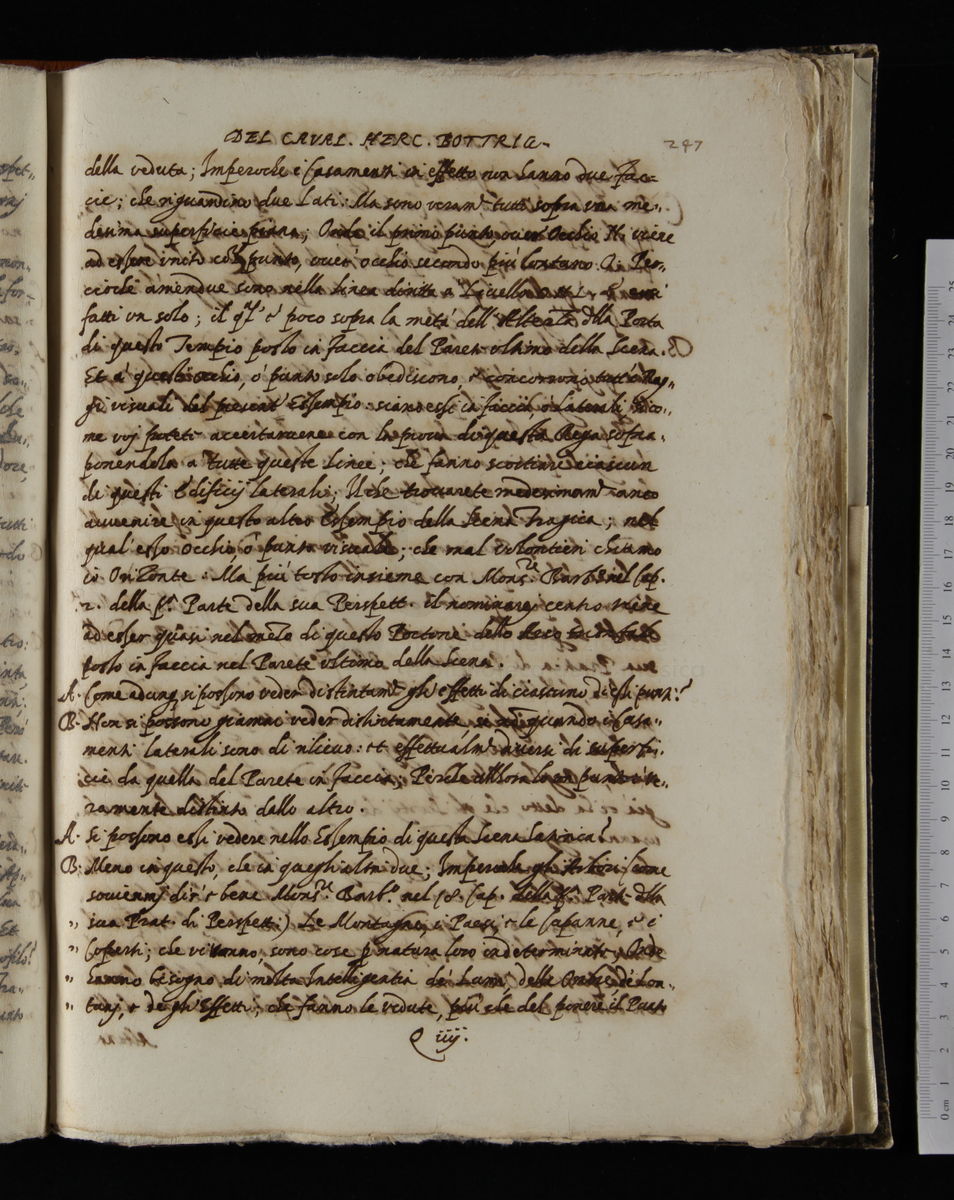 DEL CAVAL. HERC. BOTTRIG.
247
della veduta; Imperoche i Casamenti in effetto non hanno due fac=
cie; che riguardino due Lati: Ma sono veram.te tutti sopra una me,,
desima superficie piana; Onde il primo punto, over Occhio H. viene
ad essere unito col punto, over occhio secondo più lontano Q. Per,,
cioche amendue sono nella linea dritta a Livello
fatti un solo; il q.l' è poco sopra la metà dell' Altezza dlla Porta
di questo Tempio posto in faccia del Parete ultimo della Scena.
Et a questo occhio, ò punto solo obediscono, e concorrono tutti i Rag,,
gi visuali del presente Essempio: siano essi in faccia, o laterali si co,,
me voj potete accertarvene con la prova di questa Riga sopra,
ponendola a tutte queste linee; che fanno scortiare ciascun
di questi Edificij laterali; Il che trovarete medesimam.te anco
avvenire in questo altro Essempio della Scena Tragica; nel
qual' esso occhio ò punto visuale; che mal volontieri chiamo
io Orizonte: Ma più tosto insieme con Mons.re Barb. nel Cap.
2. della p.a Parte della sua Perspett. il nominarei centro viene
ad esser quasi nel mezo di questo Portone dello
posto in faccia nel Parete ultimo della Scena.
A. Come adunq. si possono veder distintam.te gli effetti di ciascuno di essi punti?
B. Non si possono giamai veder distintamente se non quando i Casa,,
menti laterali sono di rilievo: et effettualm.te diversi di superfi,,
cie da quella del Parete in faccia; Perche allhora
ramente distinto dallo altro.
A. Si possono essi vedere nello Essempio di questa Scena Satirica?
B: Meno in questo, che in quegli altri due; Imperoche gli Arbori (come
soviemmj dir' e bene Mons.re Barb.o nel Cap. della p.a Parte dlla
,, sua Prat. di Perspett.) Le Montagne, i Paesi, e le Capanne, e i
,, Coperti; che vi vanno, sono cose p natura loro indeterminate, Onde
,, hanno bisogno di molta Intelligentia de' Lumi, delle Ombre, di Lon,,
,, tanj, e degli Effetti; che fanno le vedute, più che del ponere il Punto
Q iiij.